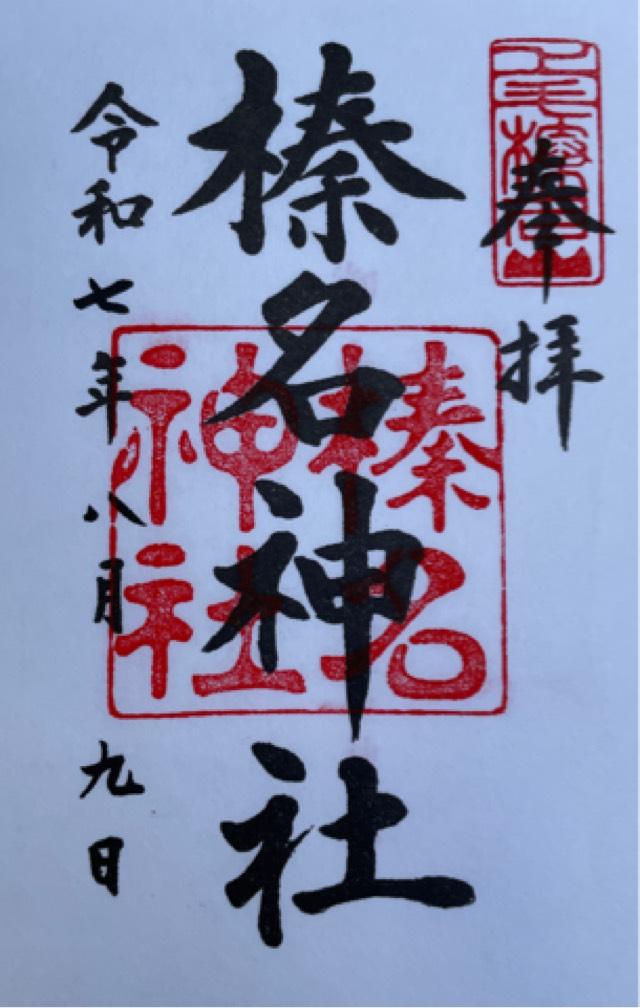 奉拝
榛名神社
令和七年八月九日
榛名
神社